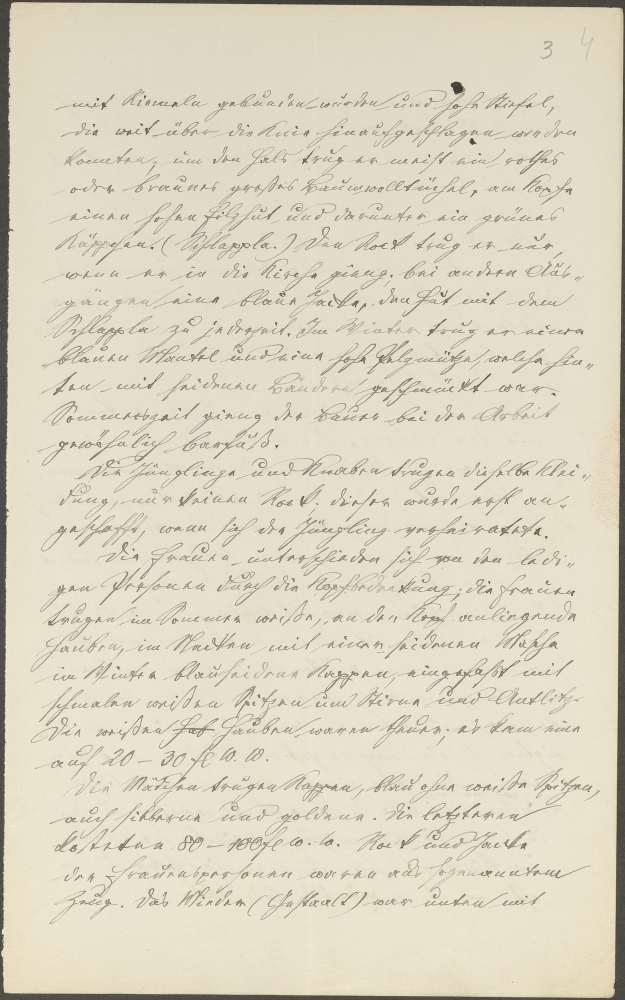 3 4
mit Riemeln gebunden wurden und hohe Stiefel,
die weit über die Knie hinaufgeschlagen werden
konnten; um den Hals trug er meist ein rothes
oder braunes großes Baumwolltüchel, am Kopfe
einen hohen Filzhut und darunter ein grünes
Käppchen. (Schlappla.) Den Rock trug er nur,
wenn er in die Kirche gieng; bei andern Aus„
gängen eine blaue Jacke, den Hut mit dem
Schlappla zu jederzeit. Im Winter trug er einen
blauen Mantel und eine hohe Pelzmütze, welche hin„
ten mit seidenen Bändern geschmückt war.
Sommerszeit gieng der Bauer bei der Arbeit
gewöhnlich barfuß.
Die Jünglinge und Knaben trugen dieselbe Klei„
dung, nur keinen Rock; dieser wurde erst an„
geschafft, wenn sich der Jüngling verheiratete.
Die Frauen unterschieden sich von den ledi„
gen Personen durch die Kopfbedeckung; die Frauen
trugen im Sommer weiße, an den Kopf anliegende
Hauben, im Nacken mit einer seidenen Masche
im Winter blauseidene Kappen, eingefaßt mit
schmalen weißen Spitzen um Stirne und Antlitz.
Die weißen Hab Hauben waren theuer; es kam eine
auf 20 – 30 fl W. W.
Die Mädchen trugen Kappen, blau ohne weiße Spitzen,
auch silberne und goldene. Die letzteren
kosteten 80 – 100 fl W. W. Rock und Jacke
der Frauenspersonen waren aus sogenanntem
Zeug. Das Mieder (Gestaalt) war unten mit